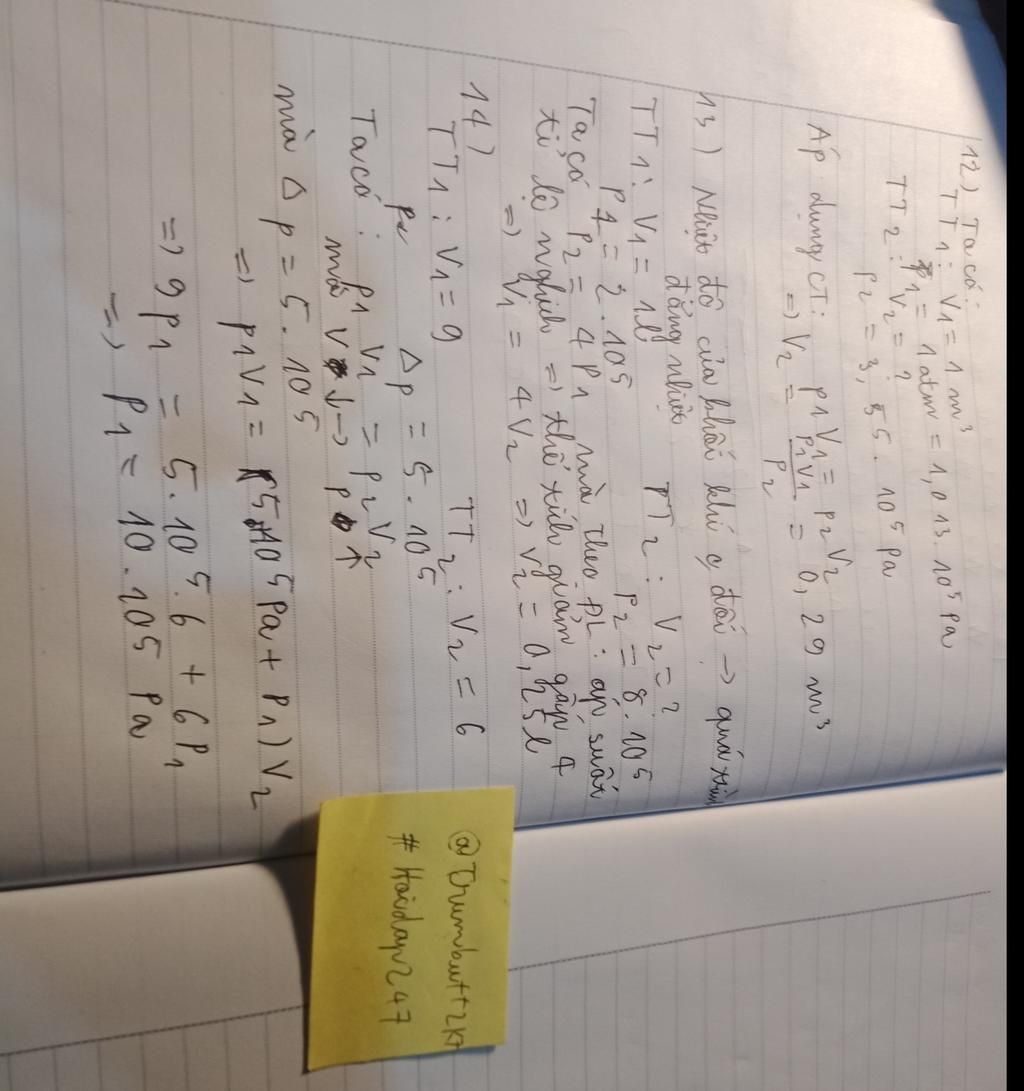 12) Ta có:
TT1: V1 = 1 m³
p1 = 1 atm = 1,013.10⁵ Pa
TT2: V2 = ?
P2 = 3,55.10⁵ Pa
Áp dụng CT: p1V1 = p2V2
=> V2 = p1V1/P2 = 0,29 m³
13) Nhiệt độ của khối khí ç đổi → quá trình
đẳng nhiệt
TT1: V1 = 1l TT2: V2 = ?
P1 = 2.10⁵ P2 = 8.10⁵
Ta có P2 = 4P1 mà theo ĐL: áp suất
tỉ lệ nghịch => thể tích giảm gấp 4
=> V1 = 4V2 => V2 = 0,25l
14)
TT1: V1 = 9 TT2: V2 = 6
Δp = 5.10⁵
Ta có: p1V1 = p2V2
mà V↓ → p↑
mà Δp = 5.10⁵
=> p1V1 = (5.10⁵Pa + P1)V2
=> 9P1 = 5.10⁵.6 + 6P1
=> P1 = 10.10⁵ Pa
@Trumbutt2k7
#Hoidap247